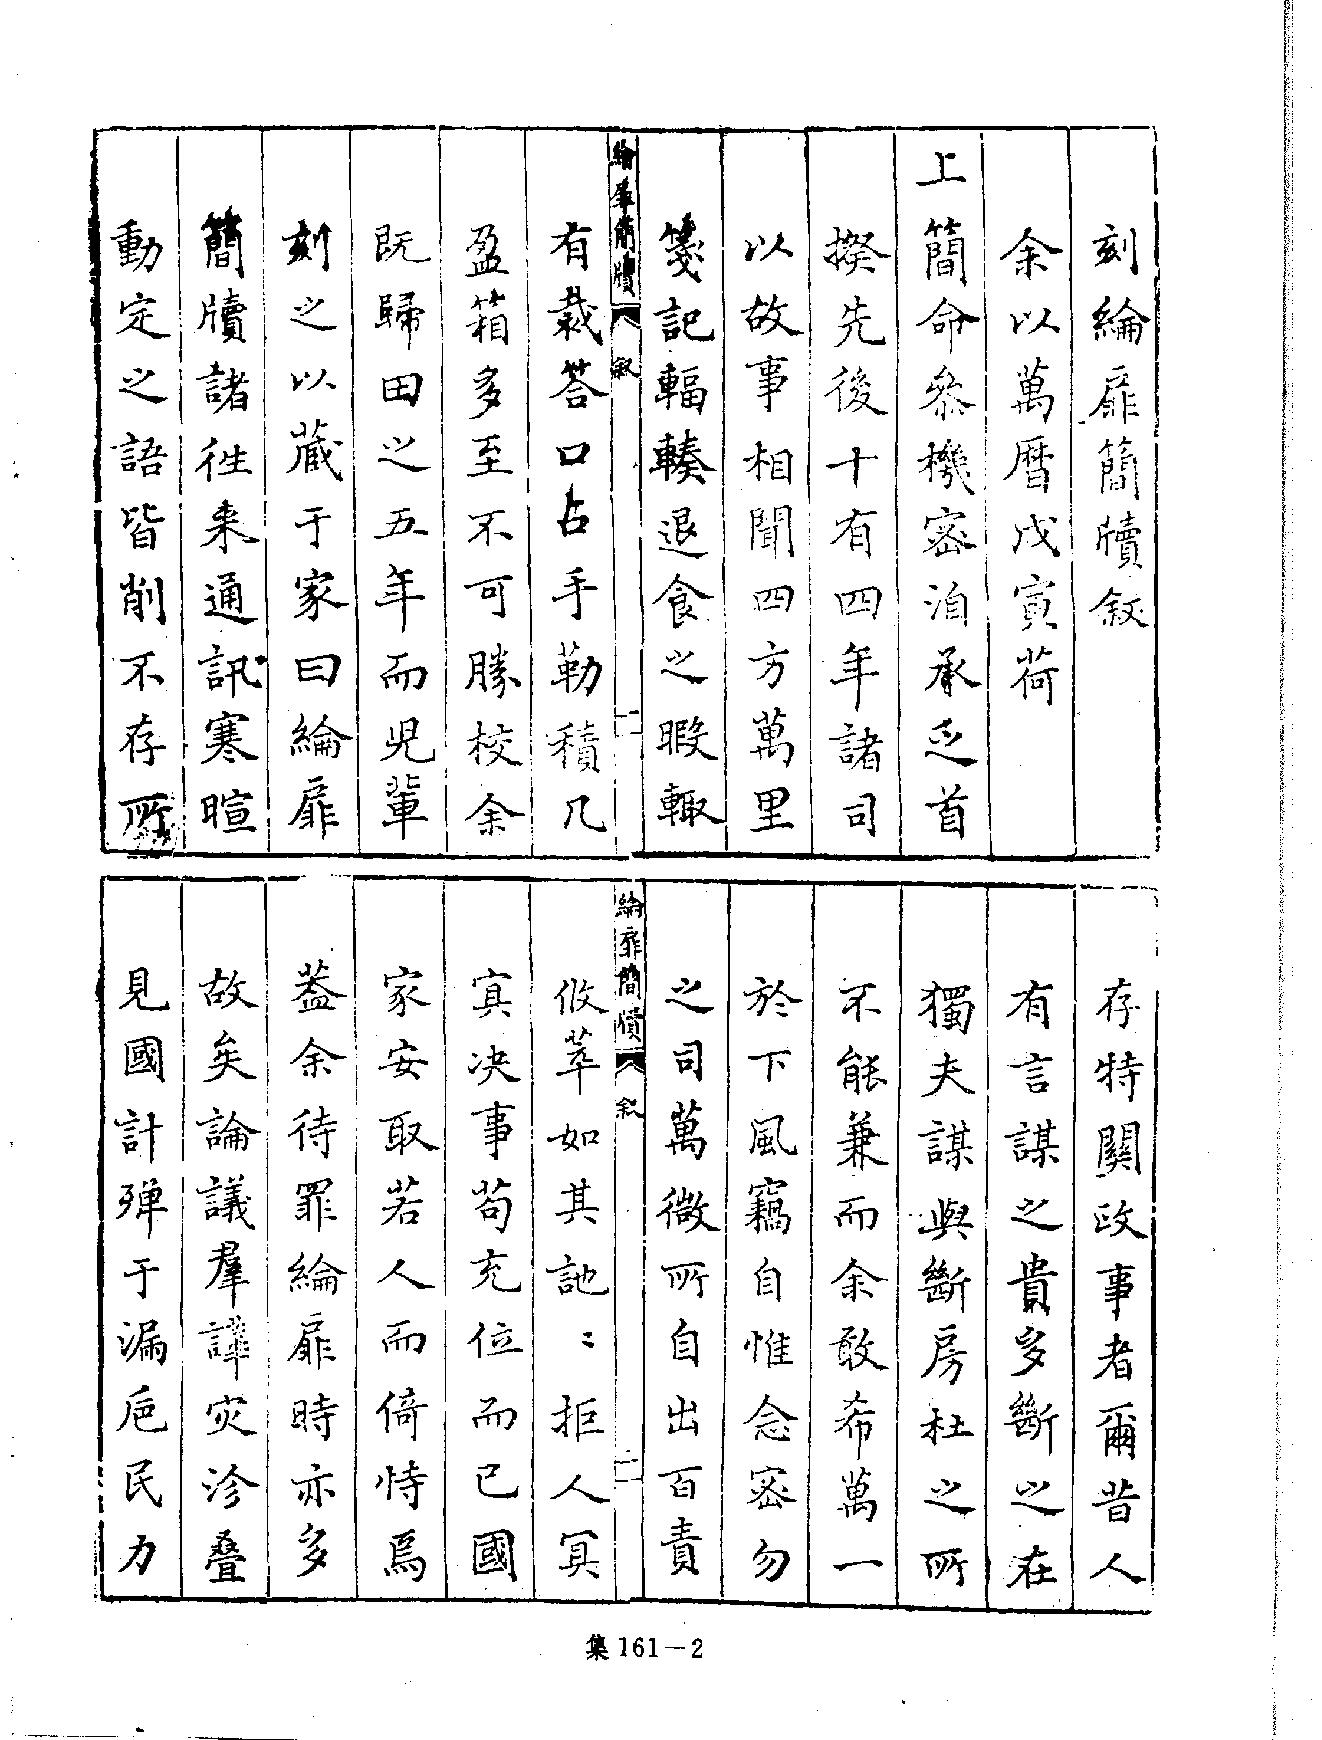 刻綸扉簡牘叙
余以萬曆戊寅荷
上簡命叅機密洎承乏首
揆先後十有四年諸司
以故事相聞四方萬里
箋記輻輳退食之暇輙
綸扉簡牘 叙 一
有裁答口占手勒積几
盈箱多至不可勝校余
既歸田之五年而児輩
刻之以蔵于家曰綸扉
簡牘諸徃来通訊寒暄
動定之語皆削不存所
存特關政事者爾昔人
有言謀之貴多斷之在
獨夫謀與斷房杜之所
不能兼而余敢希萬一
於下風竊自惟念密勿
之司萬微所自出百責
綸扉簡牘 叙 二
攸萃如其訑〻拒人冥
寘决事苟充位而已國
家安取若人而倚恃焉
葢余待罪綸扉時亦多
故矣論議羣譁灾沴叠
見國計殫于漏巵民力
集161－2